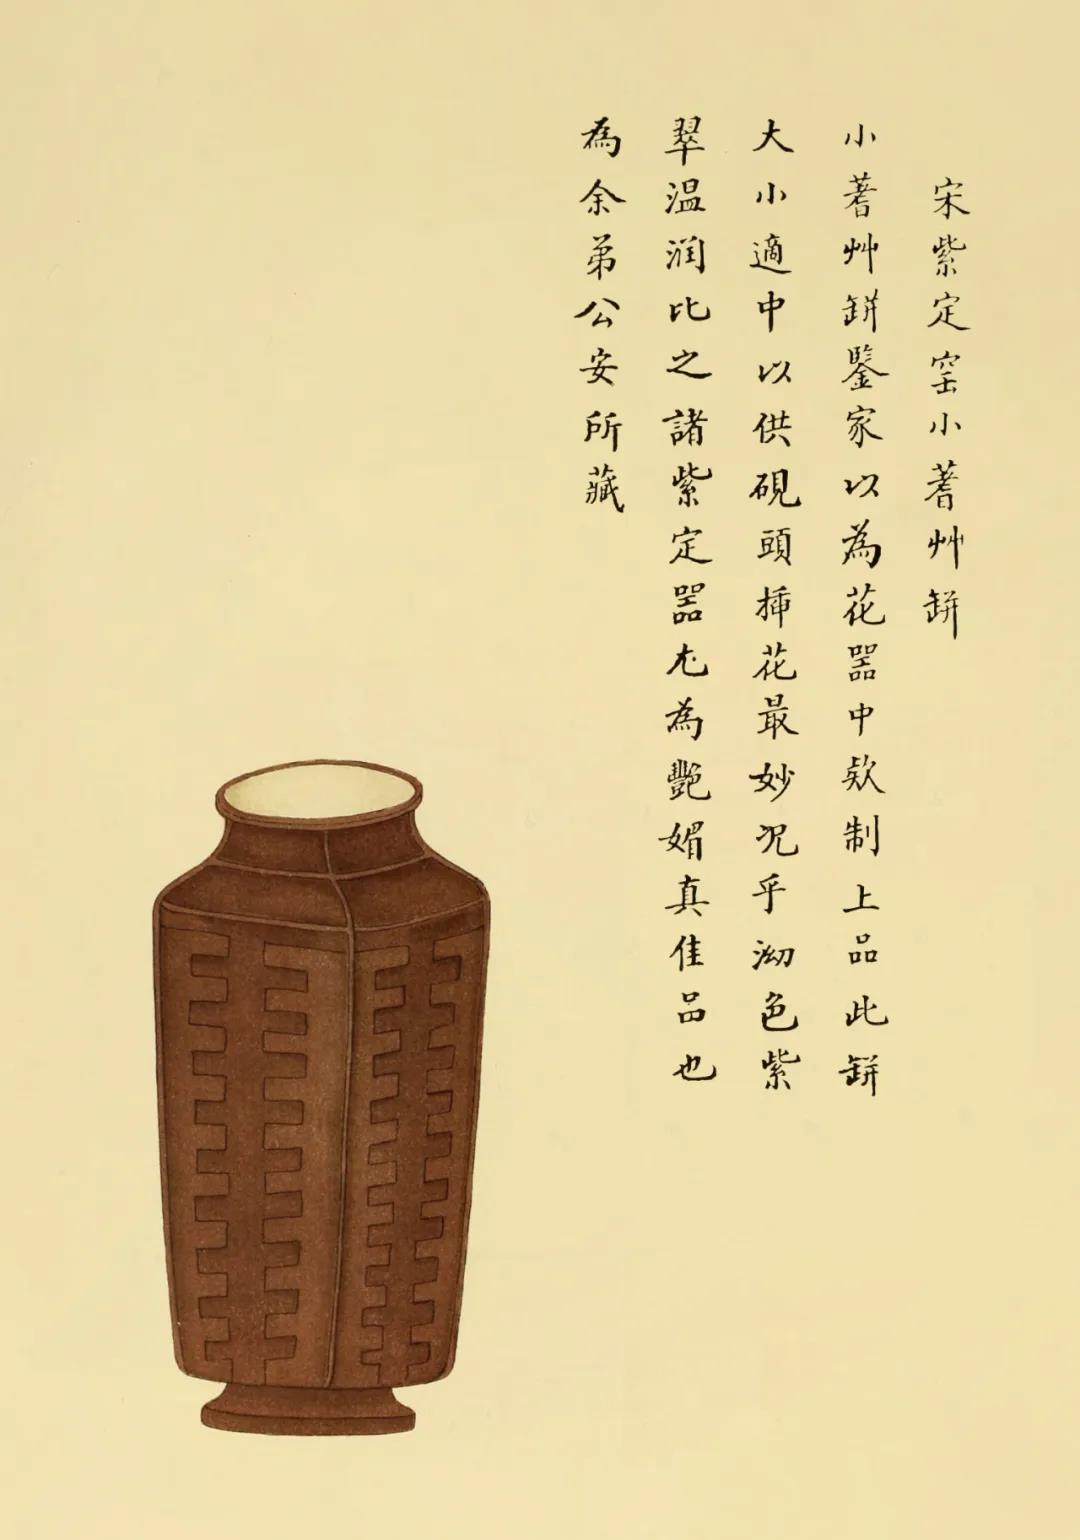 宋紫定窑小蓍艸缾
小蓍艸缾鑒家以為花器中欵制上品此缾
大小適中以供硯頭揷花最妙况乎泑色紫
翠温润比之諸紫定器尤為艷媚真佳品也
為余弟公安所藏